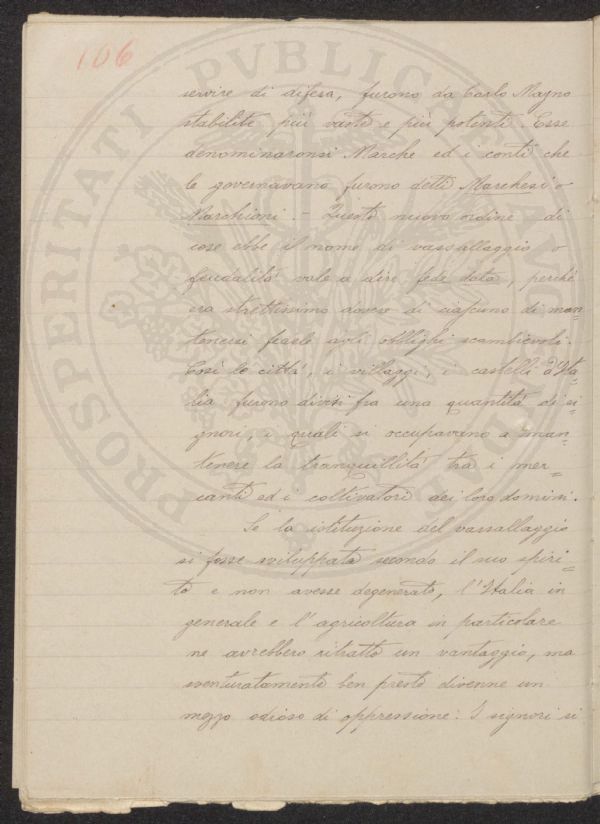 106
servire di difesa, furono da Carlo Magno
stabilite più vaste e più potenti. Esse
denominaronsi Marche ed i conti che
le governavano furono detti Marchesi o
Marchioni. - Questo nuovo ordine di
cose ebbe il nome di vassallaggio o
feudalità vale a dire fede data, perché
era strettissimo dovere di ciascuno di man=
tenersi fedele agli obblighi scambievoli.
Così le città, i villaggi, i castelli d'Ita=
lia furono divisi fra una quantità di si=
gnori, i quali si occupavano a man=
tenere la tranquillità tra i mer=
canti ed i coltivatori dei loro dominî.
Se la istituzione del vassallaggio
si fosse sviluppata secondo il suo spiri=
to e non avesse degenerato, l'Italia in
generale e l'agricoltura in particolare
ne avrebbero ritratto un vantaggio, ma
sventuratamente ben presto divenne un
mezzo odioso di oppressione: I signori si
PROSPERITATI PVBLICAE AVG